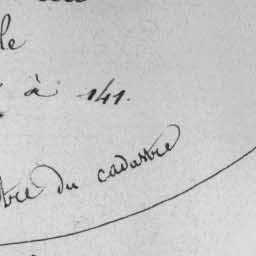 le
à 141.
tre du cadastre